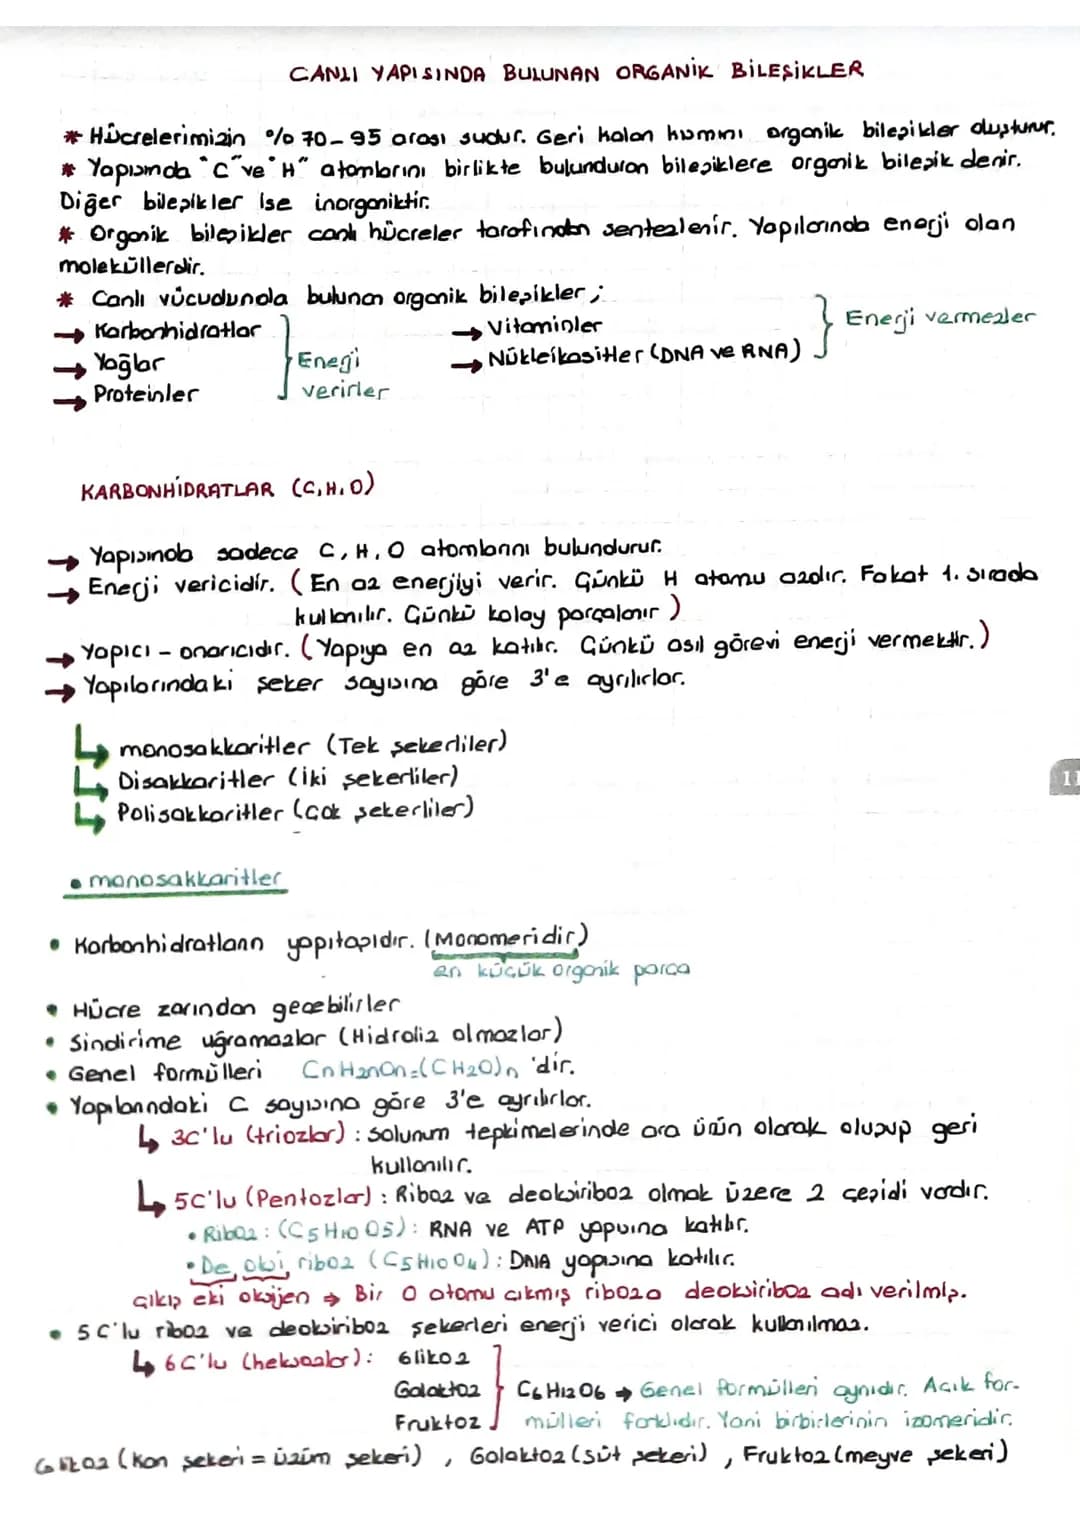 CANLI YAPISINDA BULUNAN ORGANİK BİLEŞİKLER
* Hücrelerimizin %70-95 arası sudur. Geri kalan kısmını organik bileşikler oluşturur.
* Yapısında "C" ve "H" atomlarını birlikte bulunduran bileşiklere organik bileşik denir.
Diğer bileşikler ise inorganiktir.
* Organik bileşikler canlı hücreler tarafından sentezlenir. Yapılarında enerji olan
moleküllerdir.
* Canlı vücudunda bulunan organik bileşikler;
→ Karbonhidratlar
→ Yağlar
→ Proteinler
Enegi
verirler
→ Vitaminler
→ Nükleikasitler (DNA ve RNA)
Enerji vermezler
KARBONHİDRATLAR (C,H,O)
→ Yapısında sadece C, H, O atomlarını bulundurur.
→ Enerji vericidir. (En az enerjiyi verir. Çünkü H atomu azdır. Fakat 1. sırada
kullanılır. Çünkü kolay parçalanır)
→ Yapıcı - onarıcıdır. (Yapıya en az katılır. Çünkü asıl görevi enerji vermektir.)
→ Yapılarındaki şeker sayısına göre 3'e ayrılırlar.
↳ monosakkaritler (Tek şekerliler)
↳ Disakkaritler (İki şekerliler)
↳ Polisakkaritler (Çok şekerliler)
11
• monosakkaritler
• Karbonhidratların yapıtaşıdır. (Monomeridir)
en küçük organik parça
• Hücre zarından geçebilirler
• Sindirime uğramazlar (Hidroliz olmazlar)
• Genel formülleri CnH2nOn=(CH2O)n 'dir.
• Yapılarındaki C sayısına göre 3'e ayrılırlar.
↳ 3C'lu (triozlar) : Solunum tepkimelerinde ara ürün olarak oluşup geri
kullanılır.
↳ 5C'lu (Pentozlar) : Riboz ve deoksiriboz olmak üzere 2 çeşidi vardır.
• Riboz : (C5H10O5) : RNA ve ATP yapısına katılır.
• De oksi riboz (C5H10O4) : DNA yapısına katılır.
çıkış eki oksijen → Bir O atomu çıkmış riboza deoksiriboz adı verilmiş.
• 5C'lu riboz ve deoksiriboz şekerleri enerji verici olarak kullanılmaz.
↳ 6C'lu (heksozlar): Glikoz
Galaktoz
Fruktoz
C6H12O6 → Genel formülleri aynıdır. Açık for-
mülleri farklıdır. Yani birbirlerinin izomeridir.
Glikoz (Kan şekeri = üzüm şekeri), Galaktoz (süt şekeri), Fruktoz (meyve şekeri)